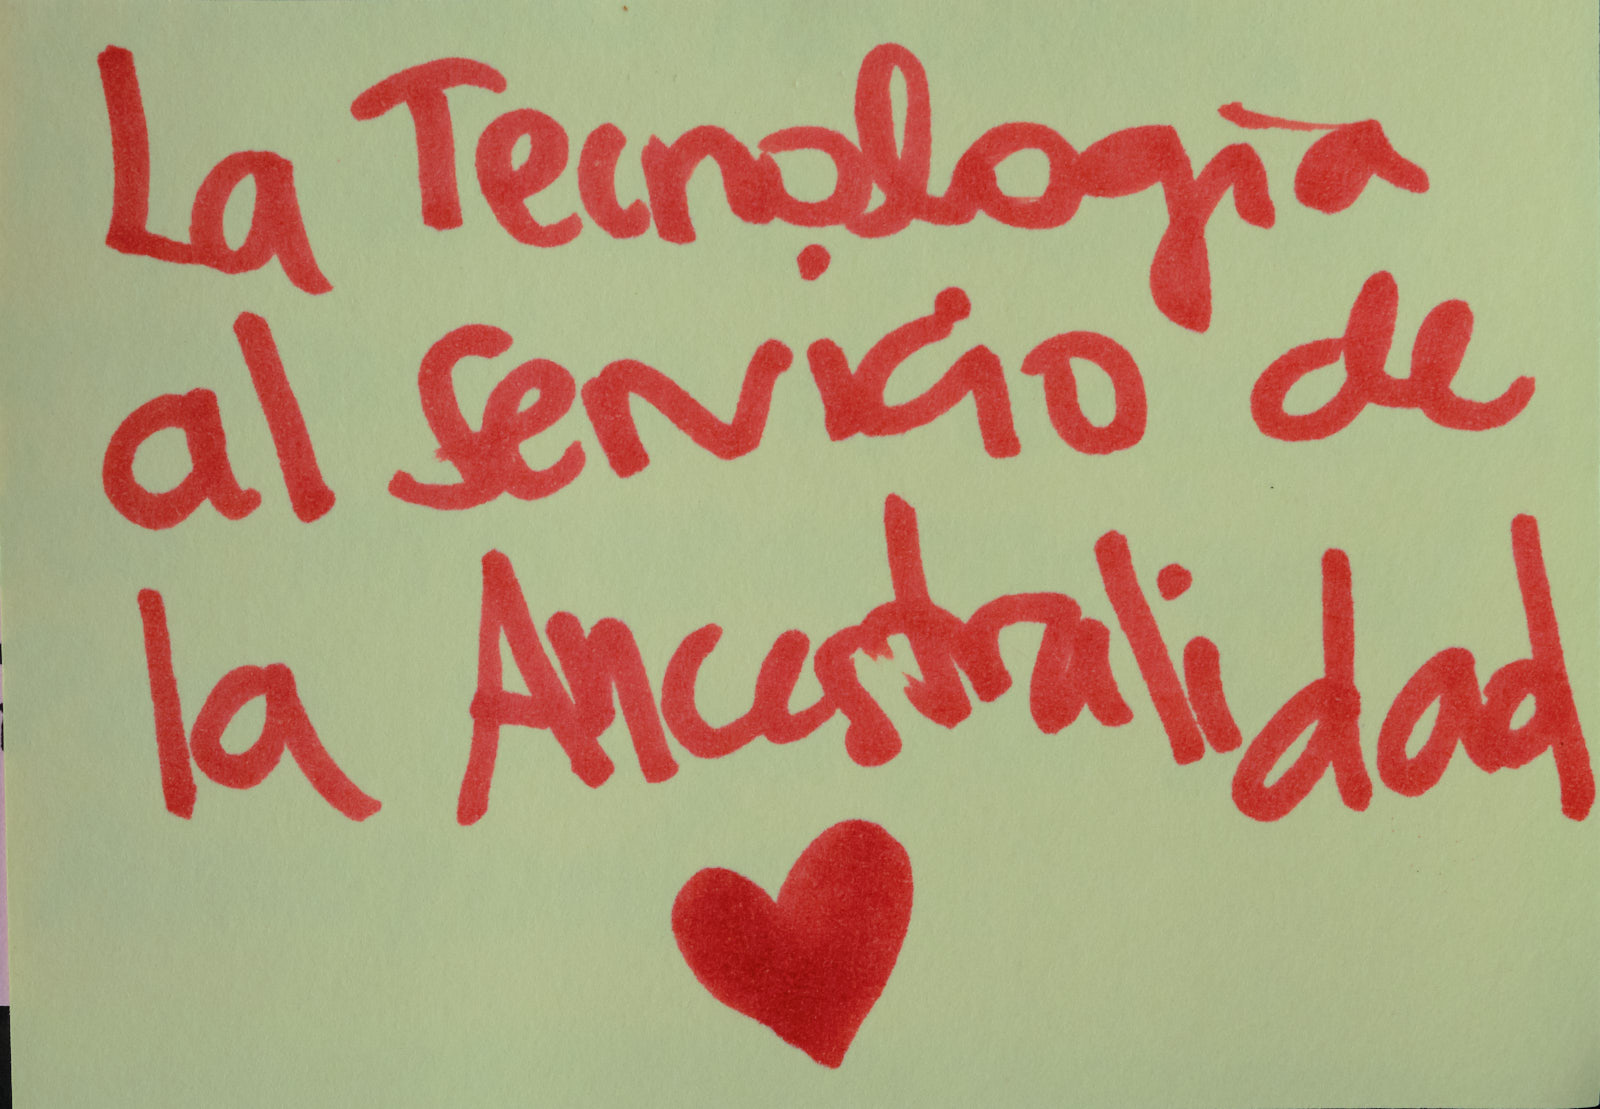 La Tecnología
al servicio de
la Ancestralidad